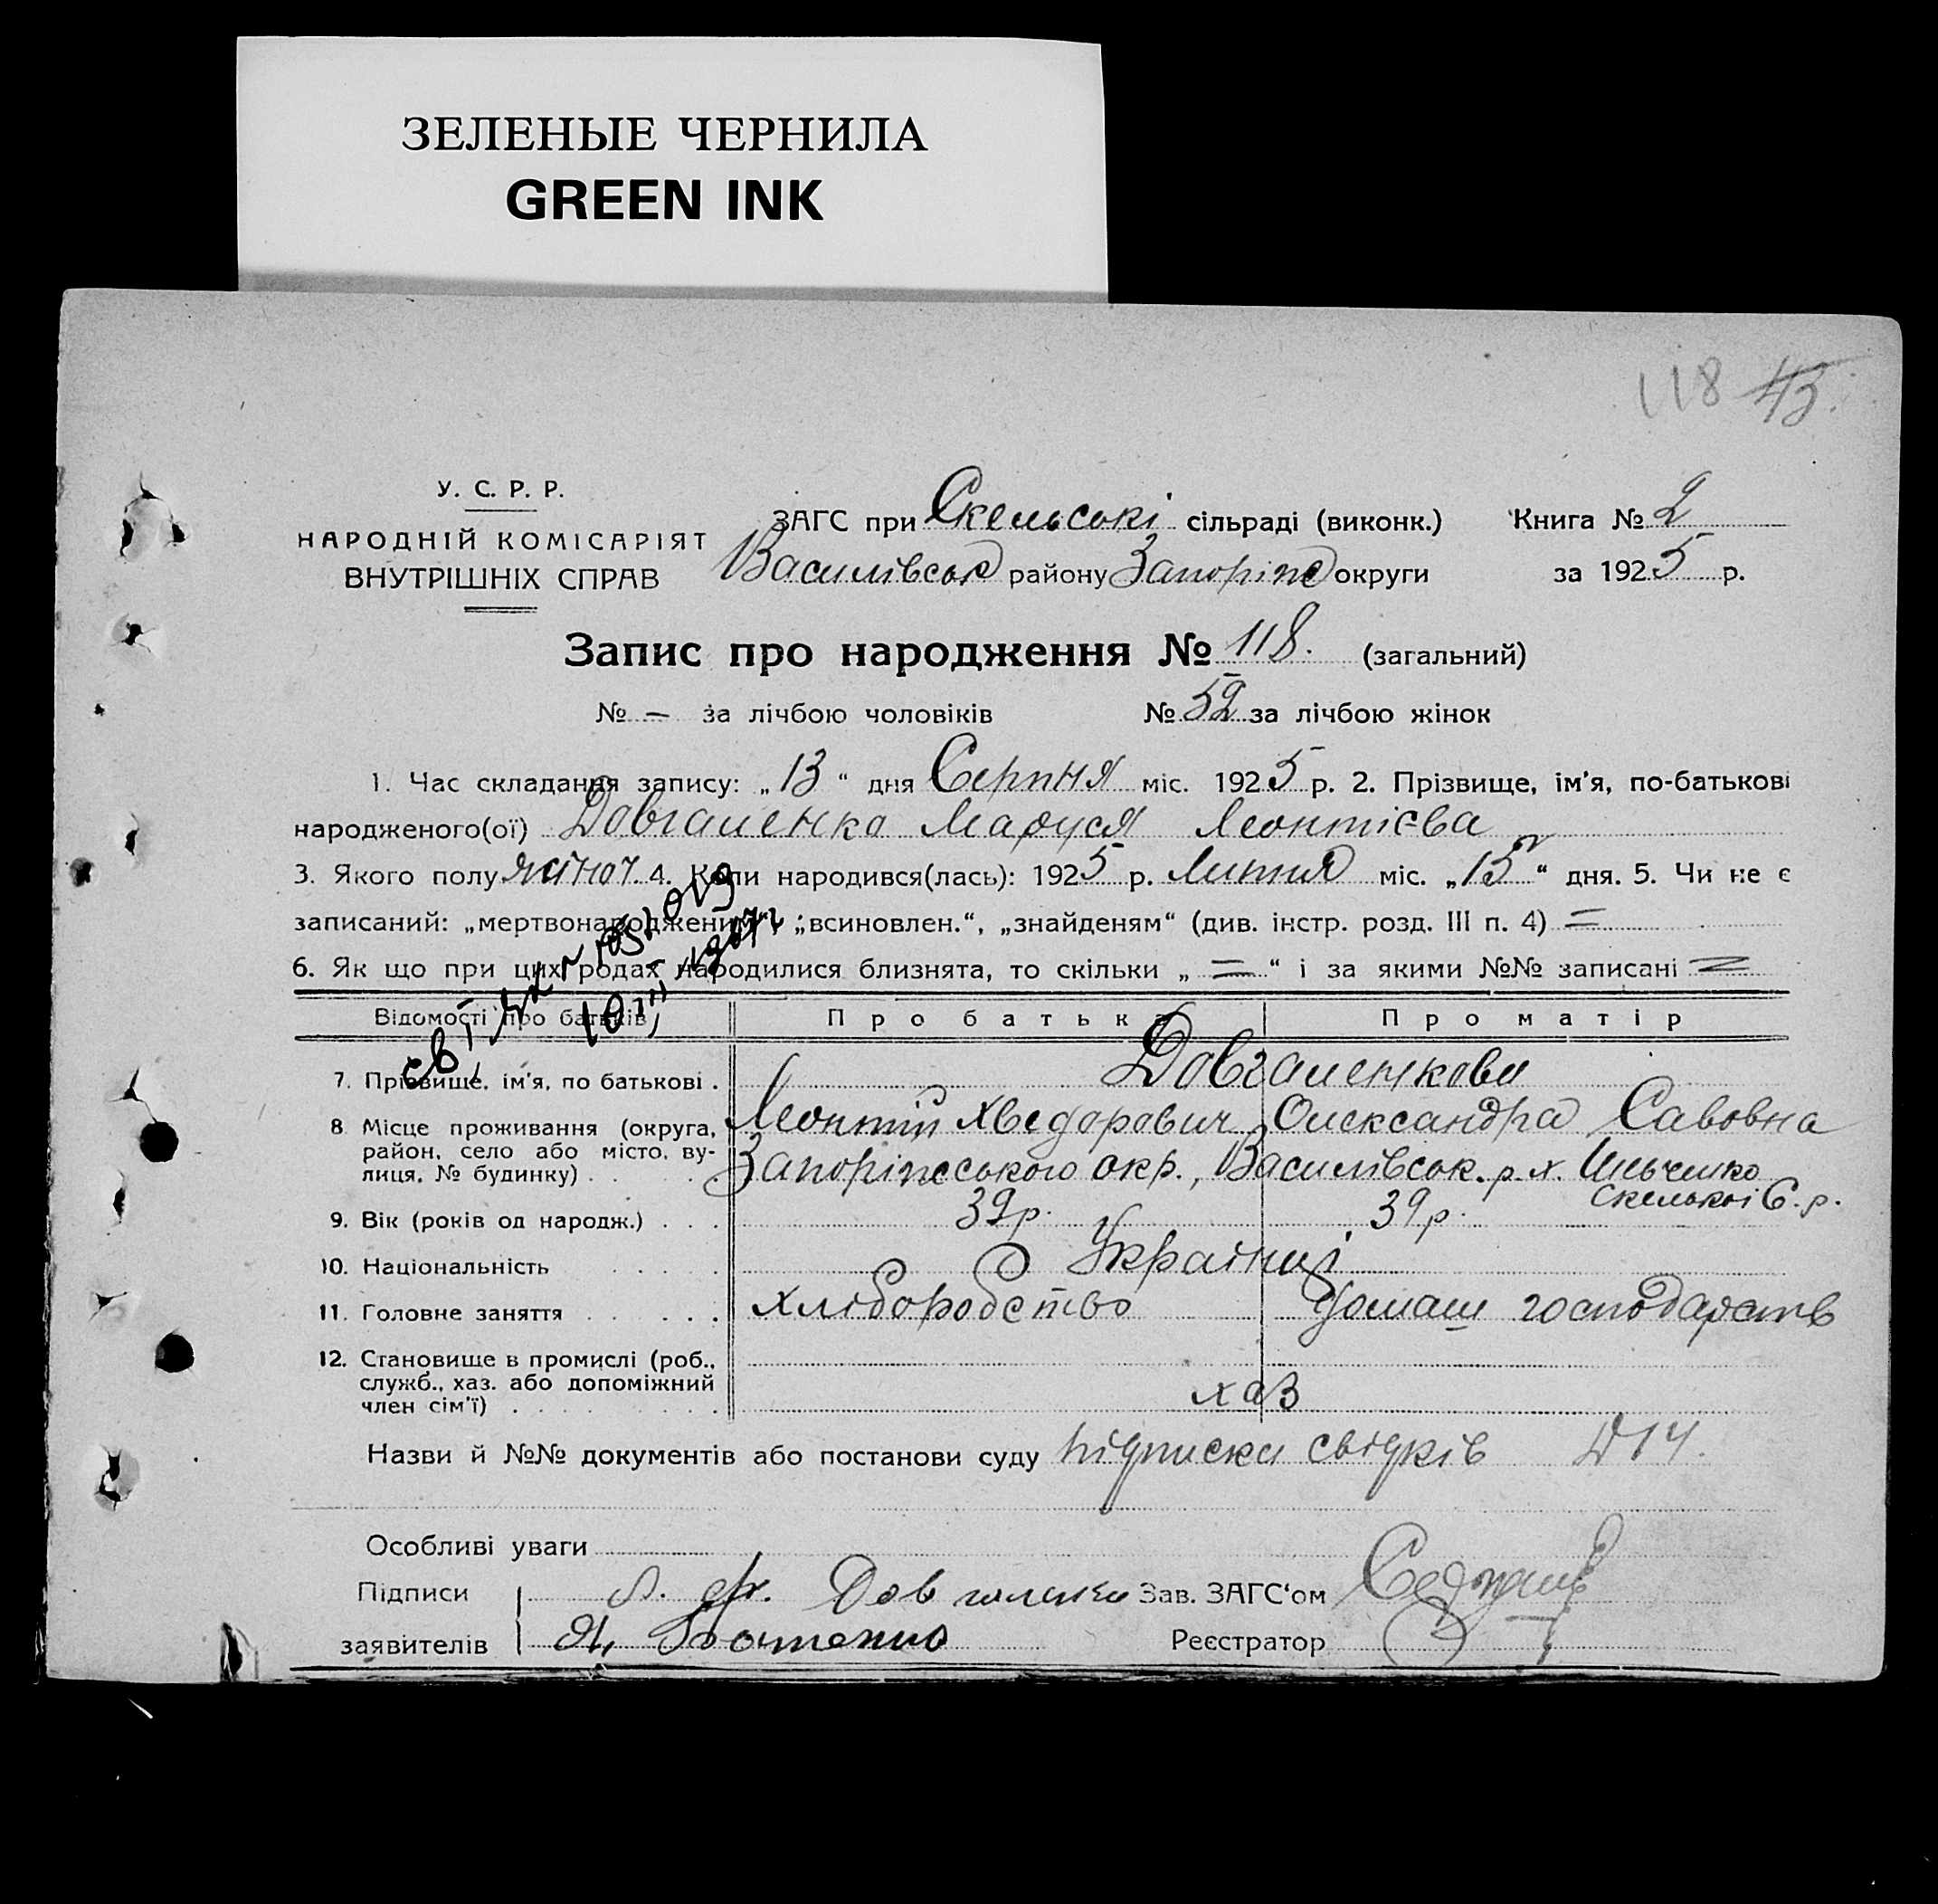 ЗЕЛЕНЫЕ ЧЕРНИЛА
GREEN INK
118 43.
У. С. Р. Р.
НАРОДНІЙ КОМІСАРІЯТ
ВНУТРІШНІХ СПРАВ
ЗАГС при Скельські сільраді (виконк.) Книга № 2
Василівськ району Запоріж округи за 1925 р.
Запис про народження № 118. (загальний)
№ — за лічбою чоловіків № 52 за лічбою жінок
1. Час складання запису: „13“ дня Серпня міс. 1925 р. 2. Прізвище, ім'я, по-батькові
народженого(ої) Довгаленко Маруся Леонтієва
3. Якого полу жіноч 4. Коли народився(лась): 1925 р. Липня міс. „15“ дня. 5. Чи не є
записаний: „мертвонародженим“, „всиновлен.“, „знайденям“ (див. інстр. розд. III п. 4) =
6. Як що при цих родах народилися близнята, то скільки „ = “ і за якими №№ записані =
Відомості про батьків Про батька Про матір
7. Прізвище, ім'я, по батькові . Довгаленкови
Леонтій Хведорович Олександра Савовна
8. Місце проживання (округа,
район, село або місто, ву-
лиця, № будинку) . . . . Запоріжського окр., Василівськ. р. х. Ильченко
Скелької С. р.
9. Вік (років од народж.) . . . 39 р. 39 р.
10. Національність . . . . . Українці
11. Головне заняття . . . . . . хліборобство домаш господарств
12. Становище в промислі (роб.,
служб., хаз. або допоміжний
член сім'ї) . . . . . . . . . хаз
Назви й №№ документів або постанови суду підписки свідків №14.
Особливі уваги
Підписи
заявителів
Л. Ф. Довгаленко
Зав. ЗАГС'ом
Реєстратор